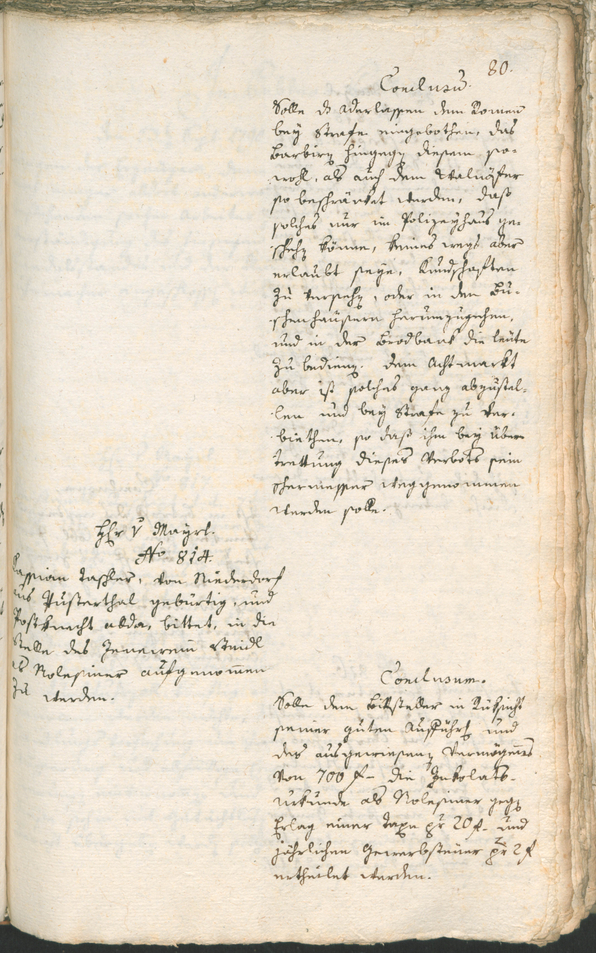 80.
Conclusum.
Solle das Aderlassen dem Romen
bey Strafe eingebothen, das
Barbirn hingegen diesem so-
wohl, als auch dem Walnöfer
so beschränket werden, daß
solches nur im Polizeyhaus ge-
schehen könne, keines wegs aber
erlaubt seye, Kundschaften
zu versehen, oder in den Bu-
schenhäusern herumzugehen,
und in der Brodbank die Leute
zu bedienen. Dem Achtmarkt
aber ist solches ganz abzustel-
len und bey Strafe zu ver-
biethen, so daß ihm bey Über-
trettung dieses Verbots sein
Schermesser weggenommen
werden solle.
Hr. v Mayrl.
No 814.
Cassian Taschler, von Niederdorf
aus Pusterthal gebürtig, und
Postknecht allda, bittet, in die
Stelle des Steidl
als Rolesiner aufgenommen
zu werden.
Conclusum.
Solle dem Bittsteller in Rücksicht
seiner guten Aufführung und
des ausgewiesenen Vermögens
von 700 f die Inkolats-
urkunde als Rolesiner gegen
Erlag einer Taxe pr 20 f und
jährlichen Gewerbsteuer pr 2 f
ertheilet werden.